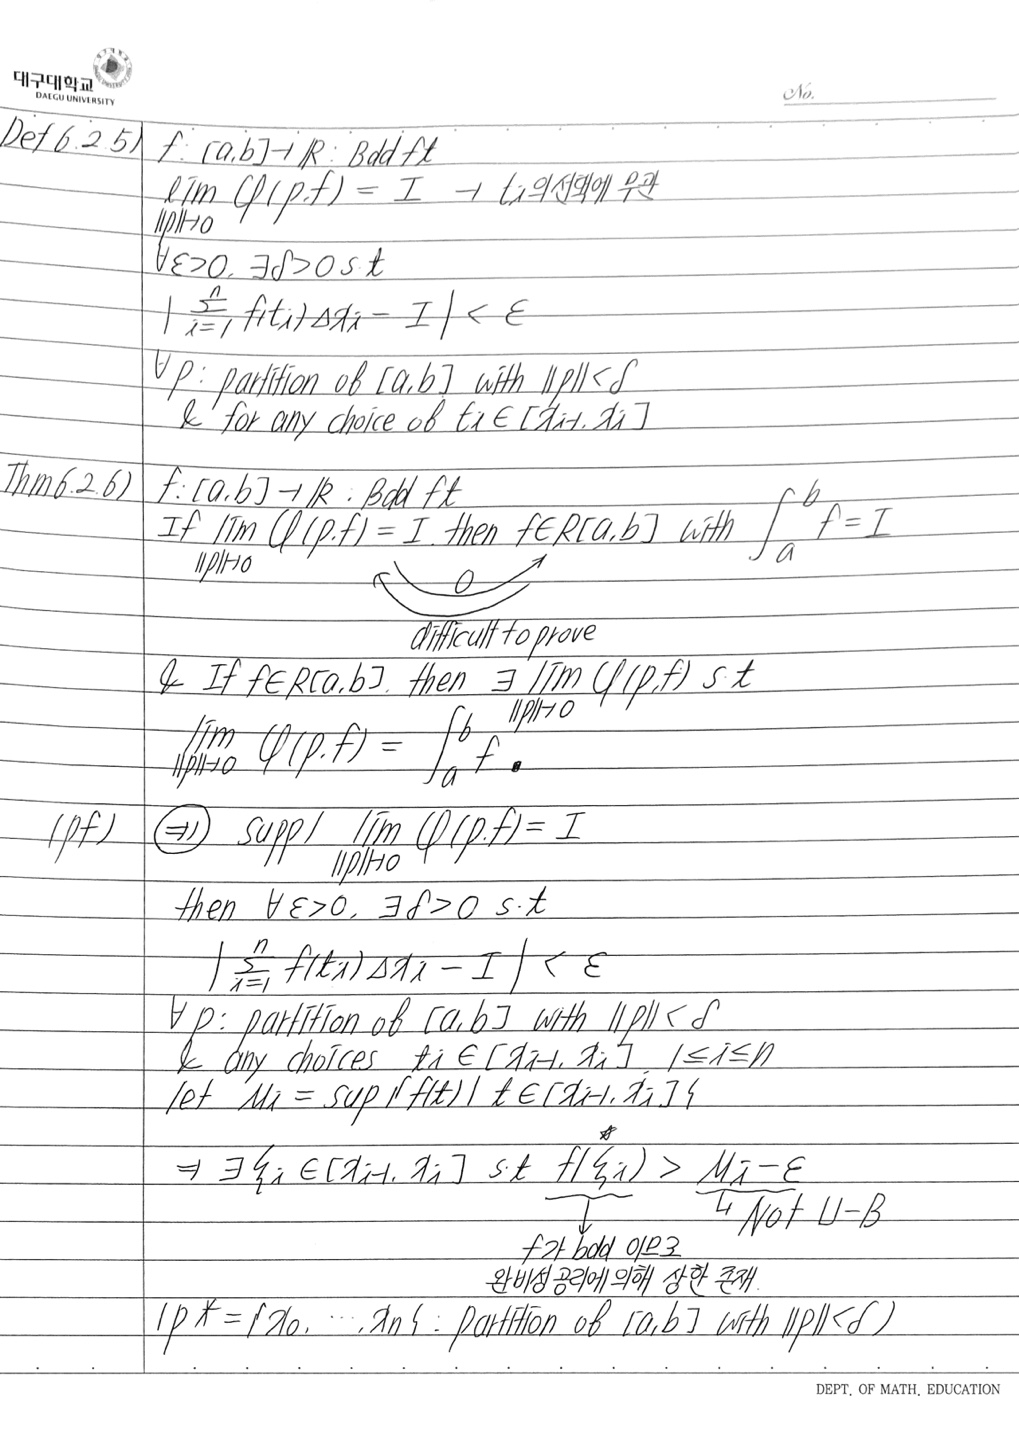 대구대학교
DAEGU UNIVERSITY
No.
Def 6.2.5) f: [a,b]→ℝ : Bdd ft
lim φ(p.f) = I → ti의 선택에 무관
||p||→0
∀ε>0. ∃δ>0 s.t
|Σ f(ti)Δxi - I| < ε
n
i=1
∀p: partition of [a,b] with ||p||<δ
& for any choice of ti ∈ [xi-1, xi]
Thm 6.2.6) f: [a,b]→ℝ : Bdd ft
If lim φ(p.f) = I. then f∈R[a,b] with ∫_a^b f = I
||p||→0
O
difficult to prove
& If f∈R[a,b]. then ∃ lim φ(p.f) s.t
||p||→0
lim φ(p.f) = ∫_a^b f .
||p||→0
(pf) ⇒) supp/ lim φ(p.f) = I
||p||→0
then ∀ε>0, ∃δ>0 s.t
|Σ f(ti)Δxi - I| < ε
n
i=1
∀p: partition of [a,b] with ||p||<δ
& any choices ti ∈ [xi-1, xi], 1≤i≤n
let Mi = sup{f(t) | t∈[xi-1, xi]}
*
⇒ ∃ξi ∈ [xi-1, xi] s.t f(ξi) > Mi - ε
↳ Not U-B
f가 bdd 이므로
완비성 공리에 의해 상한 존재.
(p* = {x0, ⋯, xn} : partition of [a,b] with ||p||<δ)
DEPT. OF MATH. EDUCATION